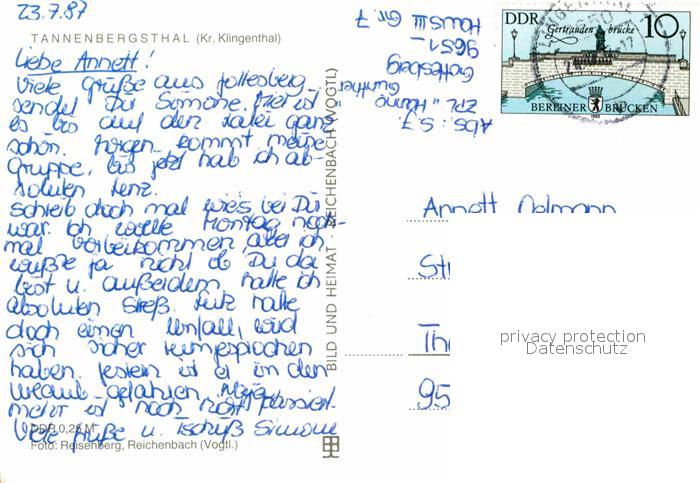 23.7.87
TANNENBERGSTHAL (Kr. Klingenthal)
Liebe Annett!
Viele Grüße aus Gottesberg
sendet Dir Simone. Hier ist
es bis auf den ganz
schön. Morgen kommt meine
Gruppe, bis jetzt hab ich ab-
soluten Lenz.
Schreib doch mal wie's bei Dir
war. Ich wollte Montag noch-
mal vorbeikommen, aber ich
wußte ja nicht ob Du da
bist u. außerdem hatte ich
absoluten Streß. Lutz hatte
doch einen Unfall, wird
sich sicher rumgesprochen
haben. Gestern ist er in den
Urlaub gefahren,
mehr ist noch nicht passiert.
Viele Grüße u. Tschüß Simone
DDR 0,25 M
Foto: Reisenberg, Reichenbach (Vogtl.)
BILD UND HEIMAT · REICHENBACH (VOGTL)
Abs.: S. F.
ZPL "Heinz
Günther"
Gottesberg
9651
Haus III Gr. 7
DDR 10
Gertraudenbrücke
BERLINER BRÜCKEN
1985
Annett Oelmann
Str
Th
95
privacy protection
Datenschutz